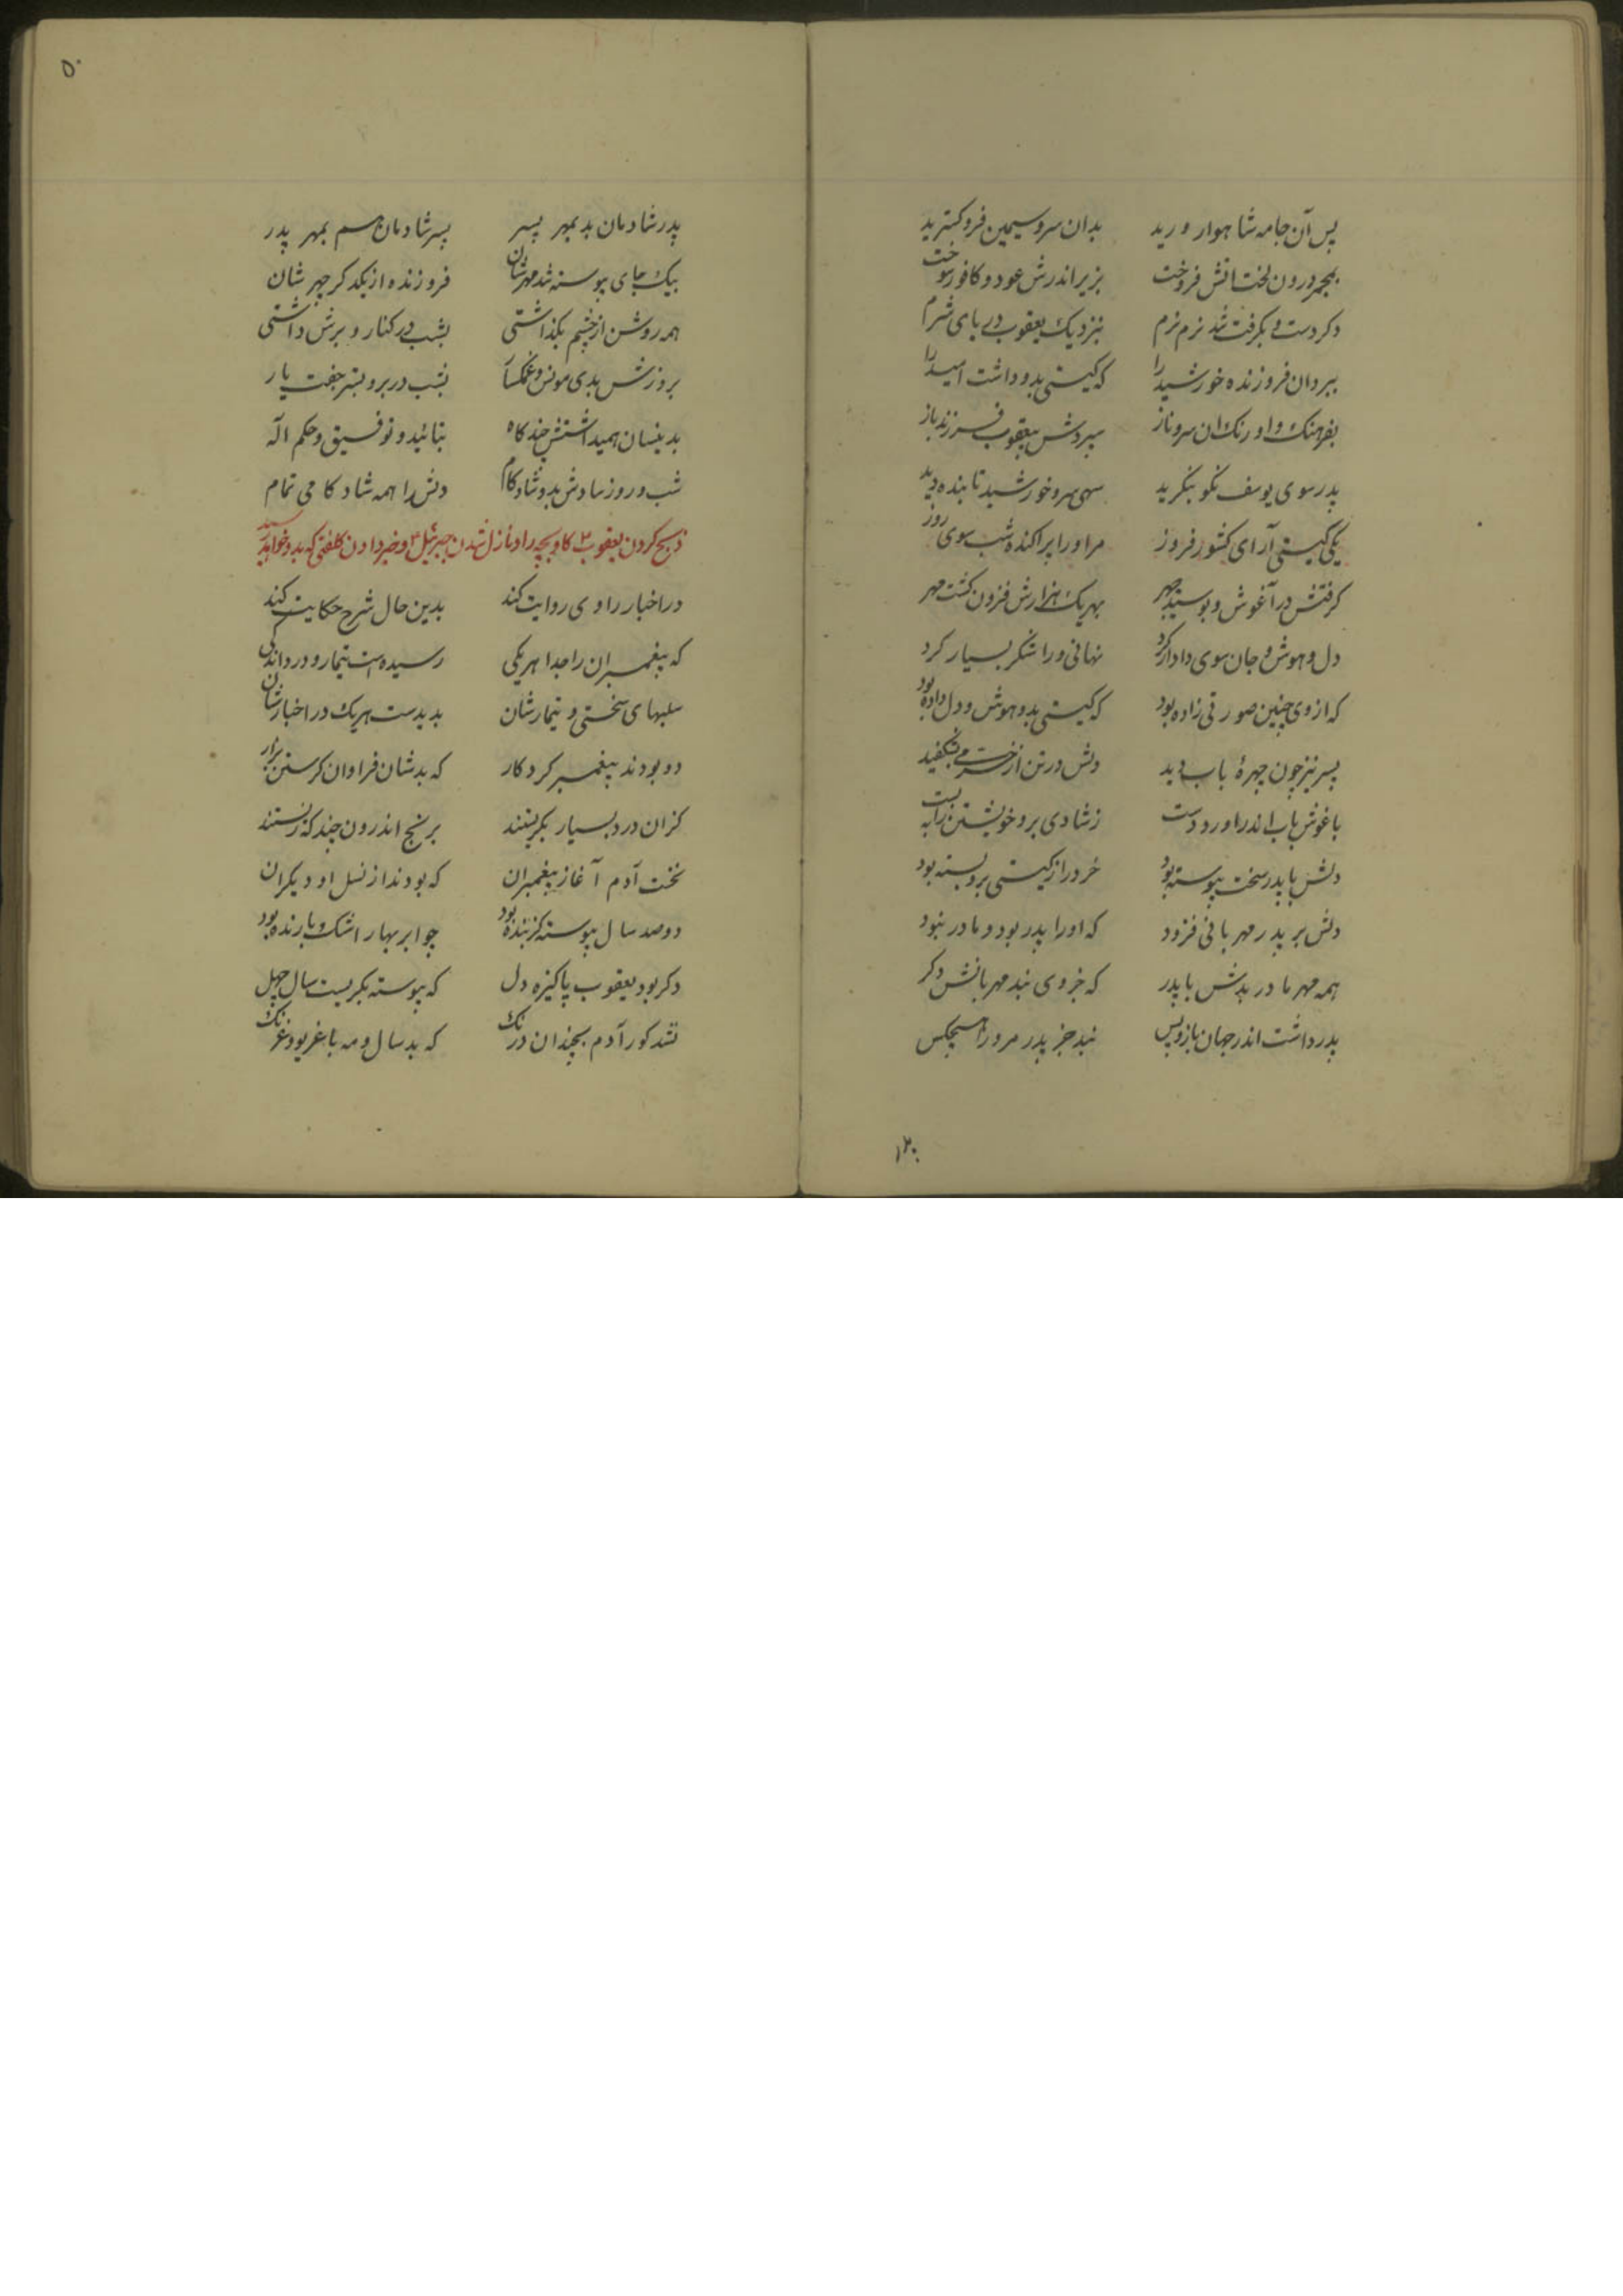 پس آن جامه شاهوار ورید بدان سرو سیمین فرو گسترید
بمجمر درون لخت آتش فروخت بزیر اندرش عود و کافور سوخت
دکر دست و بکرفت شد نرم نرم بنزدیک یعقوب در پای شرم
ببرد ان فروزنده خورشید را که کیتی بدو داشت امید را
بفرهنک و اورنک ان سرو ناز سپردش بیعقوب فرزند باز
پدر سوی یوسف نکو بنکرید سهی سرو خورشید تابنده دید
یکی کیتی آرای کشور فروز مر او را پراکنده شب سوی روز
کرفتش در آغوش و بوسید چهر بهر یک هزارش فزون کشت مهر
دل و هوش و جان سوی دادار کرد نهانی ورا شکر بسیار کرد
که از وی چنین صورتی زاده بود که کیتی بدو هوش و دل داده بود
پسر نیز چون چهرهٔ باب دید دلش در تن از خرمی بشکفید
باغوش باب اندر اورد دست ز شادی برو خویشتن را ببست
دلش با پدر سخت پیوسته بود خرد را ز کیتی برو بسته بود
دلش بر پدر مهربانی فزود که او را پدر بود و مادر نبود
همه مهر مادر بدش با پدر که جز وی نبد مهربانش دکر
پدر داشت اندر جهان باز و پس نبد جز پدر مر ورا هیچکس
۱۲۰
۵۰
پدر شادمان بد بمهر پسر پسر شادمان هم بمهر پدر
بیک جای پیوسته شد مهرشان فروزنده از یکدکر چهرشان
همه روشن از چشم بکذاشتی بشب در کنار و برش داشتی
بروزش بدی مونس و غمکسار بشب در بر و بستر جفت یار
بدینسان همیداشتش چندکاه بتائید و توفیق و حکم اله
شب و روز سادش بدو شادکام دلش را همه شادکامی تمام
ذبح کردن یعقوب ع کاو بچه را و نازل شدن جبرئیل ع و خبر دادن کلفتی که بدو خواهد رسید
در اخبار راوی روایت کند بدین حال شرح حکایت کند
که پیغمبران را جدا هر یکی رسیده است تیمار و درد اندکی
سلبهای سختی و تیمارشان بدیدست هر یک در اخبارشان
دو بودند پیغمبر کردکار که بدشان فراوان کرستن بزار
کزان درد بسیار بکریستند برنج اندرون چند که زیستند
نخست آدم آغاز پیغمبران که بودند از نسل او دیکران
دو صد سال پیوسته کرینده بود چو ابر بهار اشک بارنده بود
دکر بود یعقوب پاکیزه دل که پیوسته بکریست سال چهل
نشد کور آدم بچندان درنک که بد سال و مه با غریو و غرنک